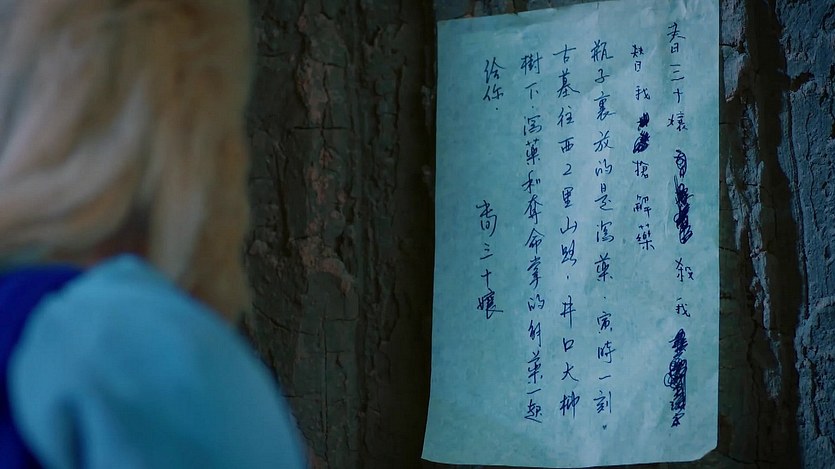 春三十孃殺我
替我搶解藥
瓶子裏放的是瀉藥．寅時一刻。
古墓往西2里山路．井口大柳
樹下．瀉藥和奪命掌的解藥一起
给你．
三十娘